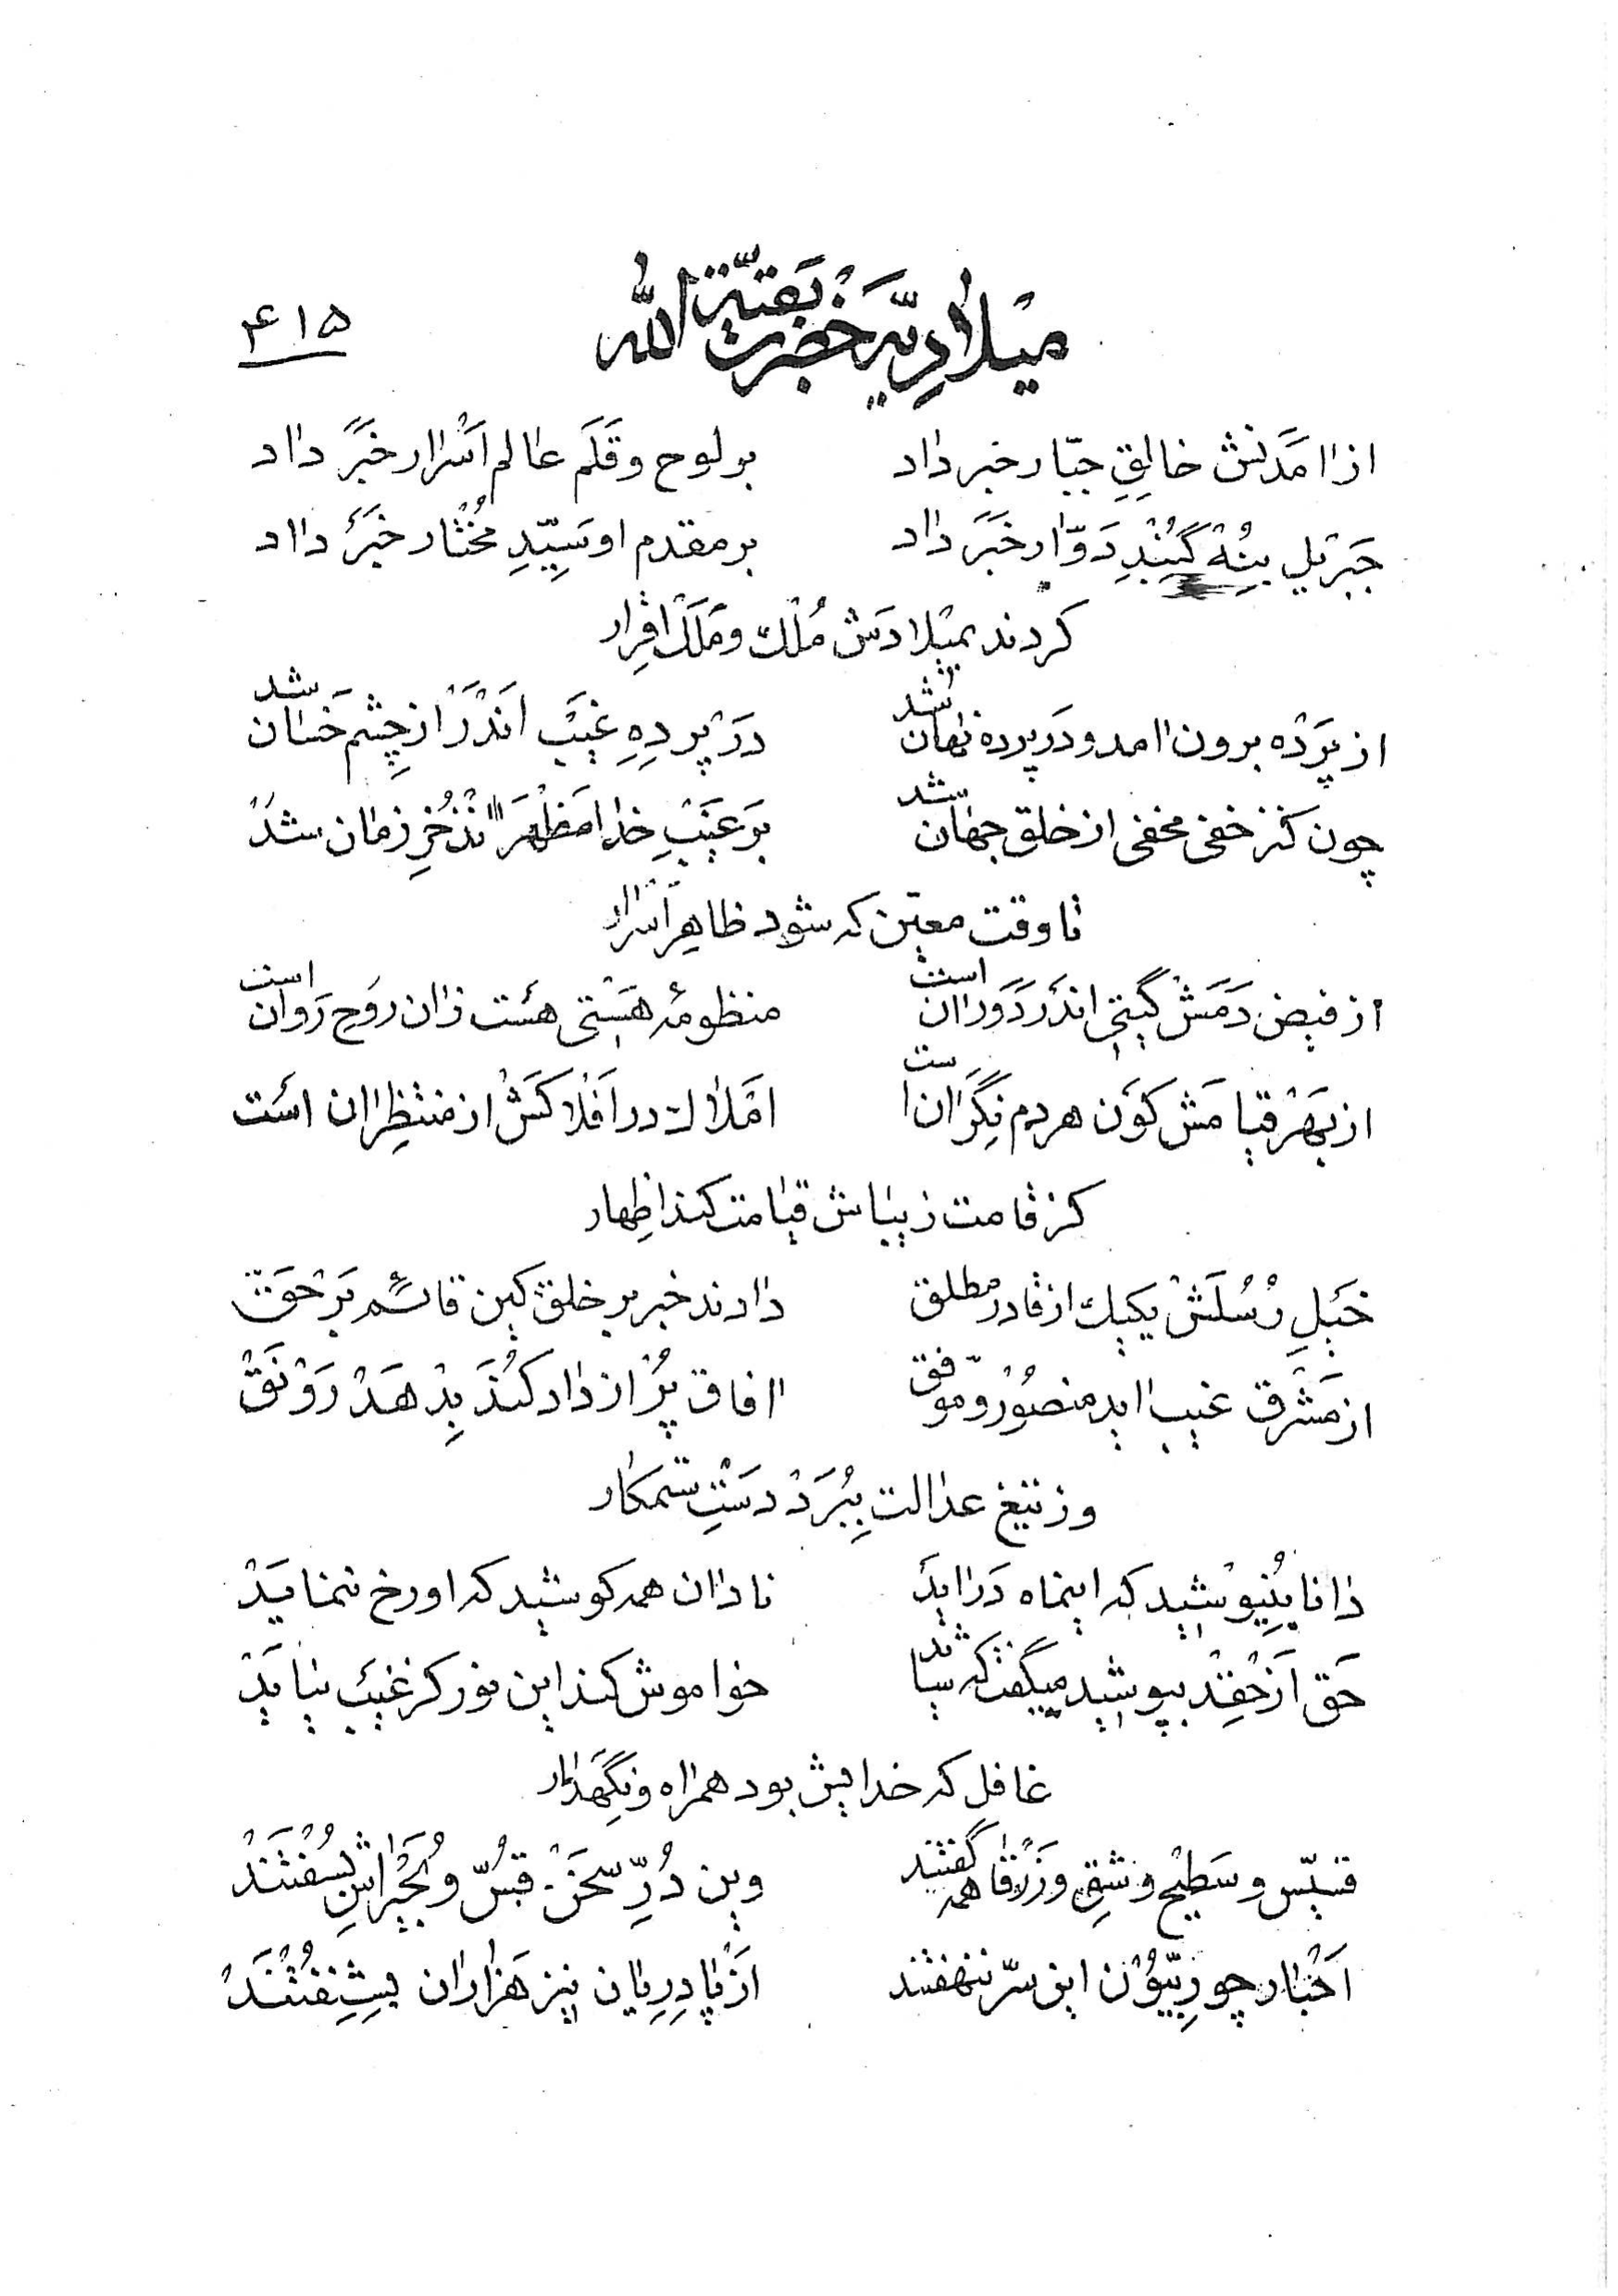 میلادیه حضرت بقیّة الله
۴۱۵
از اامَدَنش خالِقِ جبّار خبر داد    بر لوح و قَلَم عالم اَسْرار خَبَر دااد
جَبرئیل بِنُهْ گُنْبَدِ دَوّار خَبَر داد    بر مقدم او سَیِّدِ مُخْتار خَبَر دااد
کردند بمیلادَش مُلْک و مَلَک اقرار
از پَرْده برون اامد و دَر پرده نهان شد    دَر پَرْدِهِ غَیْب اَنْدَرْ از چِشم خَسان شد
چون کنز خفی مخفی از خلق جهان شد    بر غَیْبِ خدا مَظْهَر اانْدَخرِ زمان شدْ
تا وقت معیّن که شود ظاهِر اَسْراار
از فیض دَمَشْ گیتی اندَر دَوَراان است    منظومهٔ هَسْتی هَست زان روحِ رَوان است
از بَهْر قیامَش کَوْن هر دم نِگَران است    اَمْلاک در اَفْلاکَش از منتظِراان اسَت
کز قامت زیباش قیامت کند اظِهار
خَیْلِ رُسُلَشْ یکیک از قادر مطلق    دادند خبر بر خلق کین قائم بَرْحَقّ
از مَشْرق غیب ااید منصُوْر و موفّق    اافاق پُرْ از داد کُنَدْ بِدْهَدْ رَوْنَقْ
وز تیغ عدالت بِبُرَدْ دسْتِ ستمکار
دانا بِنِیوشید که اینماه دَرااید    نادان همه کوشید که او رخ ننمایَدْ
حَق اَزْ حِقْد بپوشید میگفت که نباید    خواموش کند این نور کز غیب بیایَدْ
غافلِ که خدایش بود همراه و نِگَهداار
قسیّس و سَطیْح و شِقّ و زَرْقا همه گفتند    وین دُرِّ سُخَنْ قُسّ و بُحَیْرااش بِسُفْتَنْدْ
اَحْبار چو رِبّیّوْن این سرّ ننهفتند    اَزْ پادِرِیان نیز هَزاران بِشِنُفْتَنْدْ